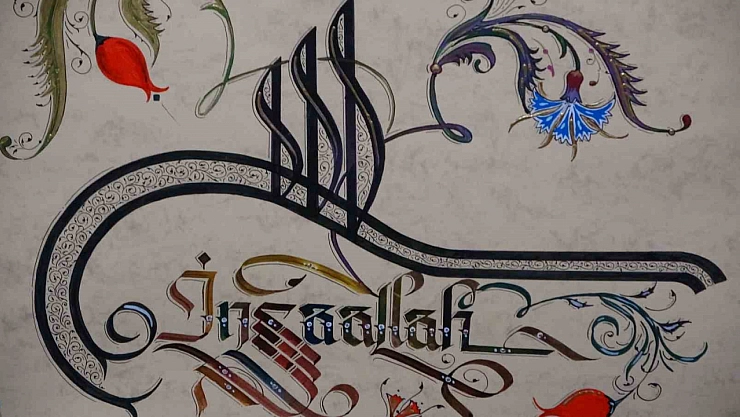 İnşaallah